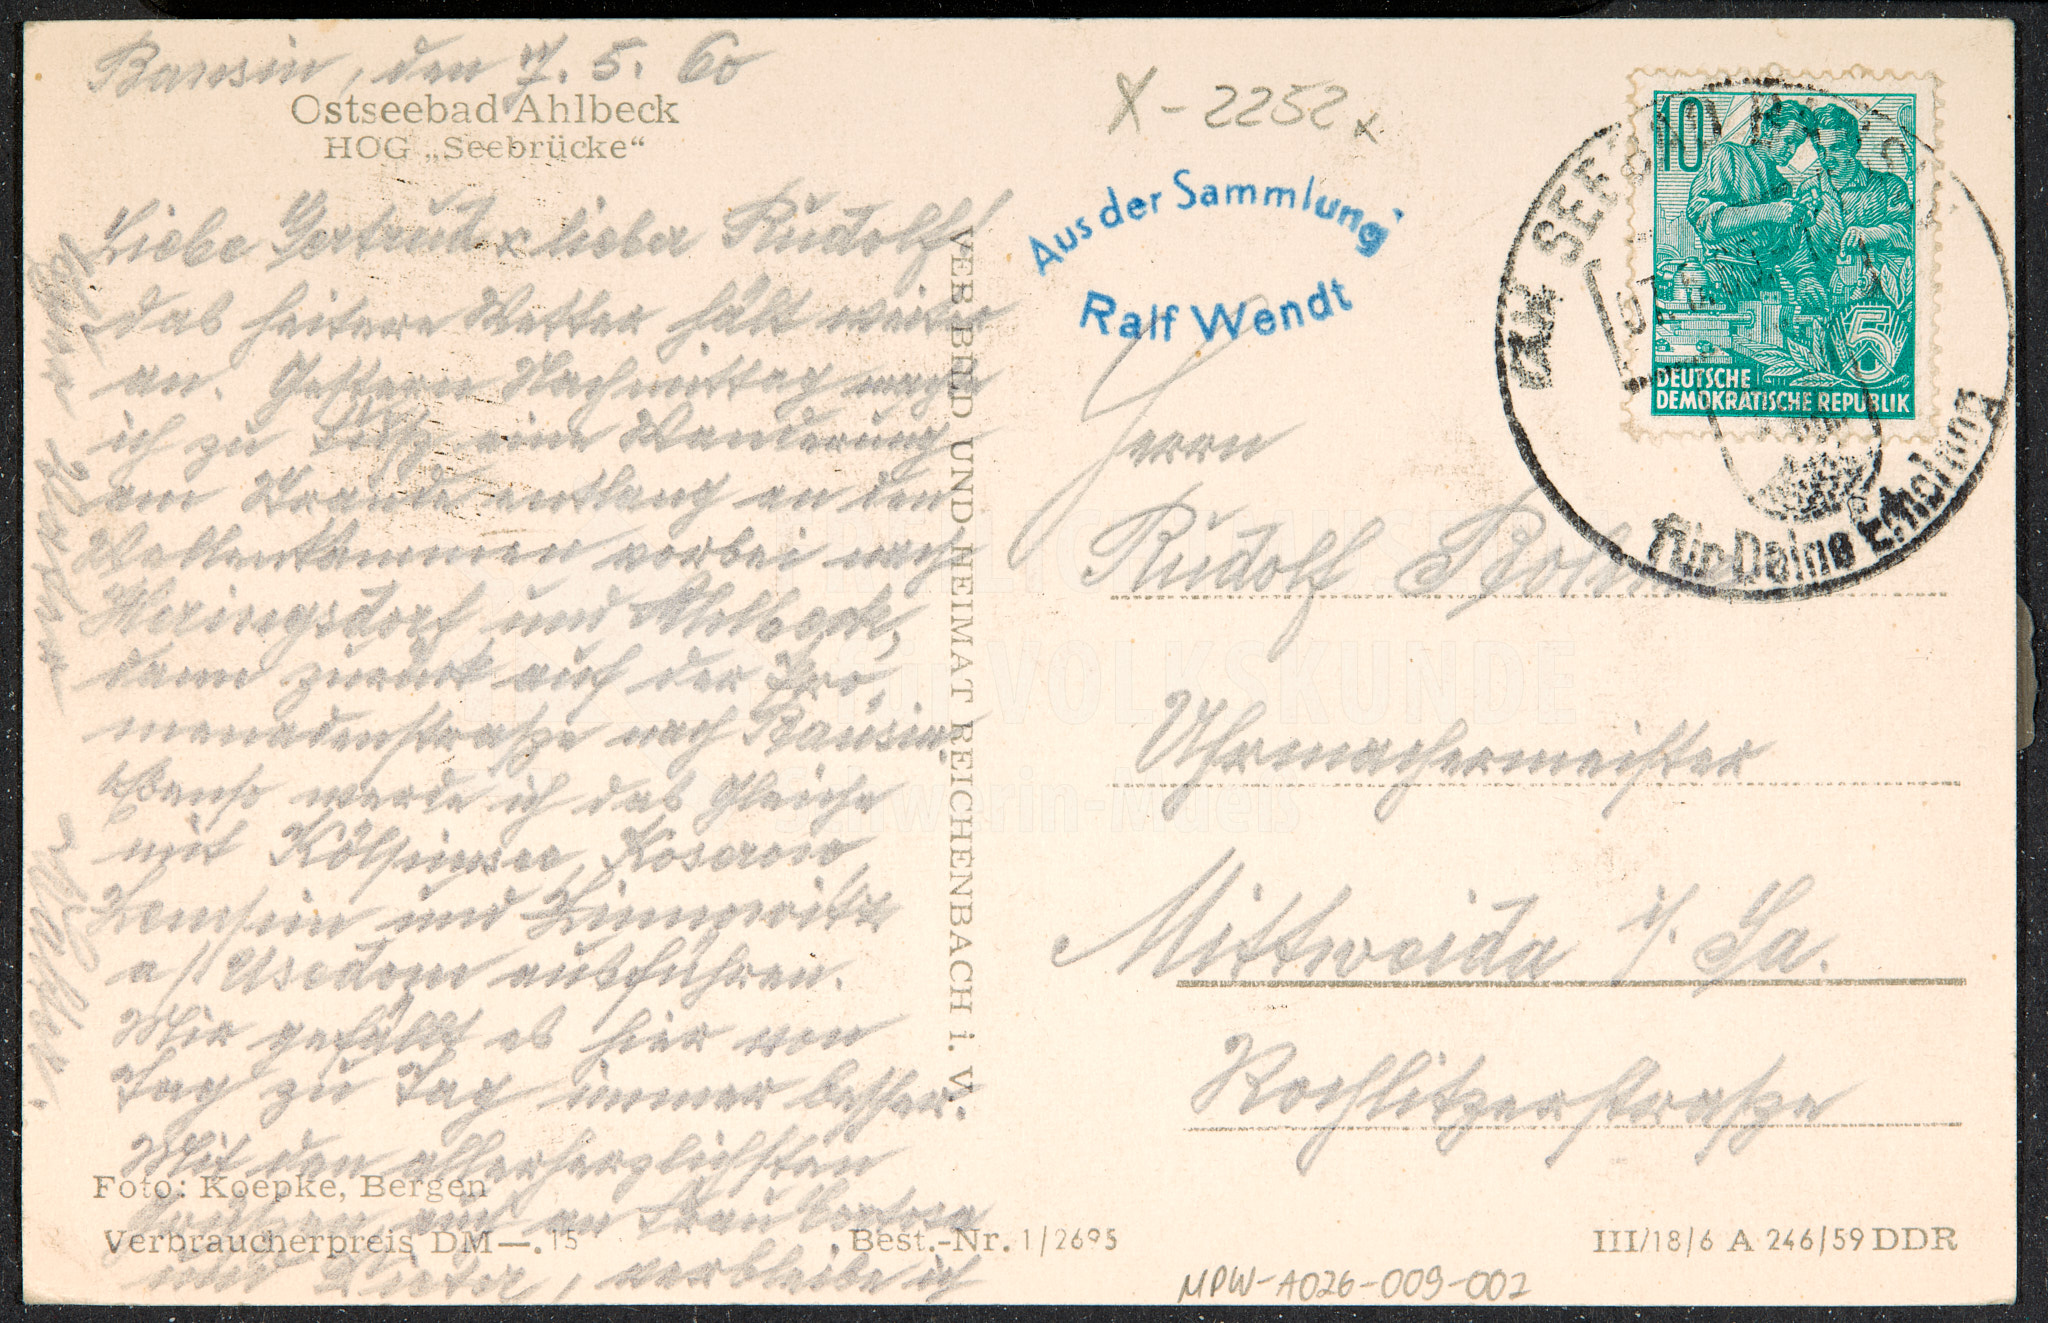 Bansin, den 7. 5. 60
Ostseebad Ahlbeck
HOG „Seebrücke“
Liebe Gertrud u. lieber Rudolf!
das heitere Wetter hält weiter
an. Gestern Nachmittag machte
ich zu Fuß eine Wanderung
am Strande entlang an den
vorbei nach
Heringsdorf und Ahlbeck,
dann zurück auf der Pro-
menadenstraße nach Bansin.
Ebenso werde ich das Gleiche
mit Kölpinsee, Koserow,
Zempin und Zinnowitz
a/ Usedom ausführen.
Mir gefällt es hier von
Tag zu Tag immer besser.
Mit den allerherzlichsten
Grüßen auch an Frau
und Dieter, verbleibe ich
Foto: Koepke, Bergen
Verbraucherpreis DM —.15
VEB BILD UND HEIMAT REICHENBACH i. V.
Best.-Nr. 1/2695
X-2252x
Aus der Sammlung
Ralf Wendt
10
5
DEUTSCHE
DEMOKRATISCHE REPUBLIK
für Deine Erholung
Herrn
Rudolf
Uhrmachermeister
Mittweida i/. Sa.
Rochlitzerstraße
III/18/6 A 246/59 DDR
MPW-A026-009-002
FREILICHTMUSEUM
für VOLKSKUNDE
Schwerin-Mueß